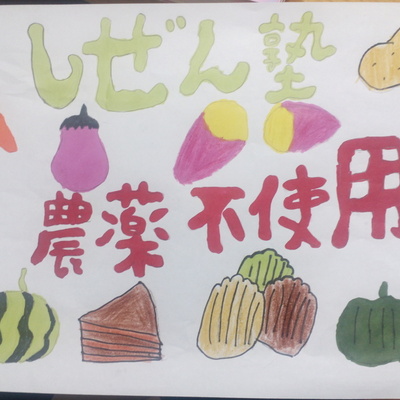 しぜん塾
農薬不使用